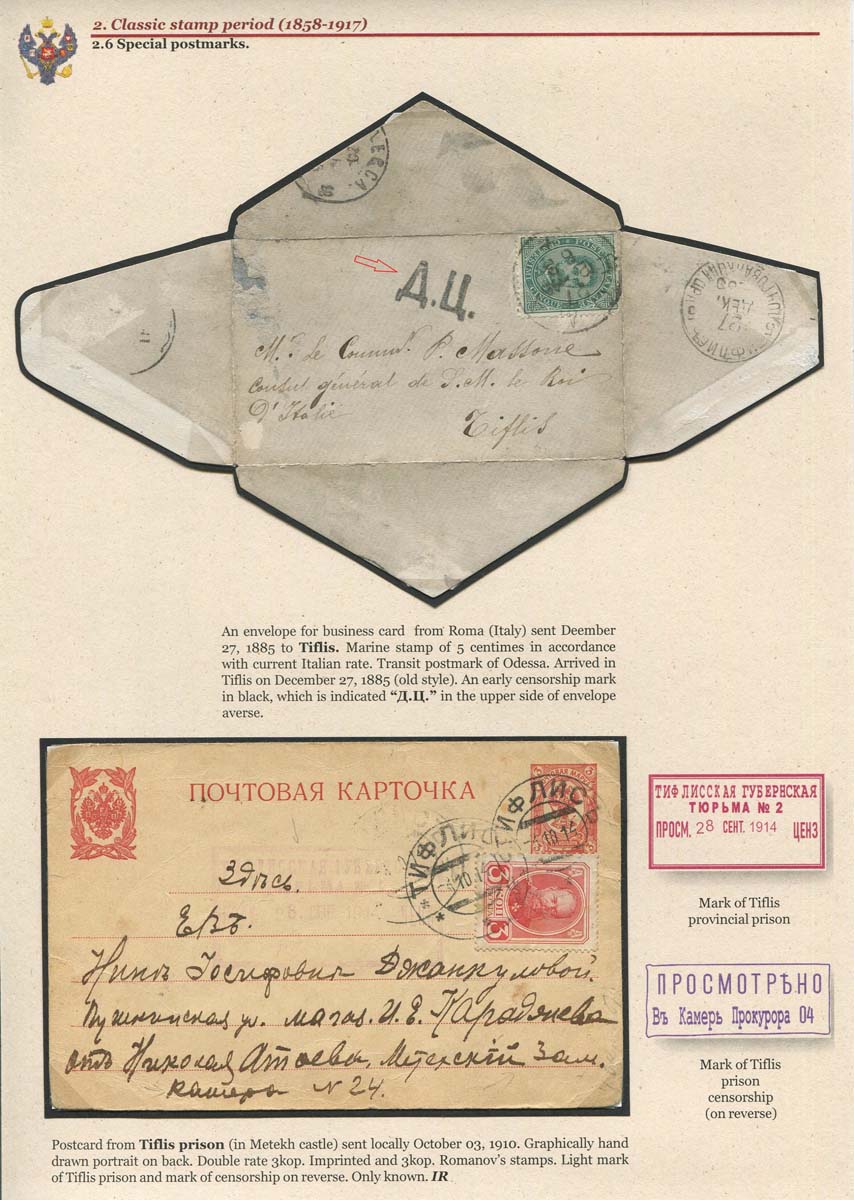 2. Classic stamp period (1858-1917)
2.6 Special postmarks.
Д.Ц.
P. Massone
consul général de S.M. le Roi
D'Italie
Tiflis
27
ДЕК.
An envelope for business card from Roma (Italy) sent Deember
27, 1885 to Tiflis. Marine stamp of 5 centimes in accordance
with current Italian rate. Transit postmark of Odessa. Arrived in
Tiflis on December 27, 1885 (old style). An early censorship mark
in black, which is indicated “Д.Ц.” in the upper side of envelope
averse.
ПОЧТОВАЯ КАРТОЧКА
ТИФЛИСЪ
ТИФЛИСЪ
-4.10.14
Здѣсь.
Евт.
Нинѣ Іосифовнѣ Джанкуловой.
Пушкинская ул. магаз. И. Е. Карадяева
отъ Николая Атоева, Метехскій Зам.
камера N 24.
ТИФЛИССКАЯ ГУБЕРНСКАЯ
ТЮРЬМА № 2
ПРОСМ. 28 СЕНТ. 1914 ЦЕНЗ
Mark of Tiflis
provincial prison
ПРОСМОТРѢНО
Въ Камерѣ Прокурора 04
Mark of Tiflis
prison
censorship
(on reverse)
Postcard from Tiflis prison (in Metekh castle) sent locally October 03, 1910. Graphically hand
drawn portrait on back. Double rate 3kop. Imprinted and 3kop. Romanov's stamps. Light mark
of Tiflis prison and mark of censorship on reverse. Only known. IR